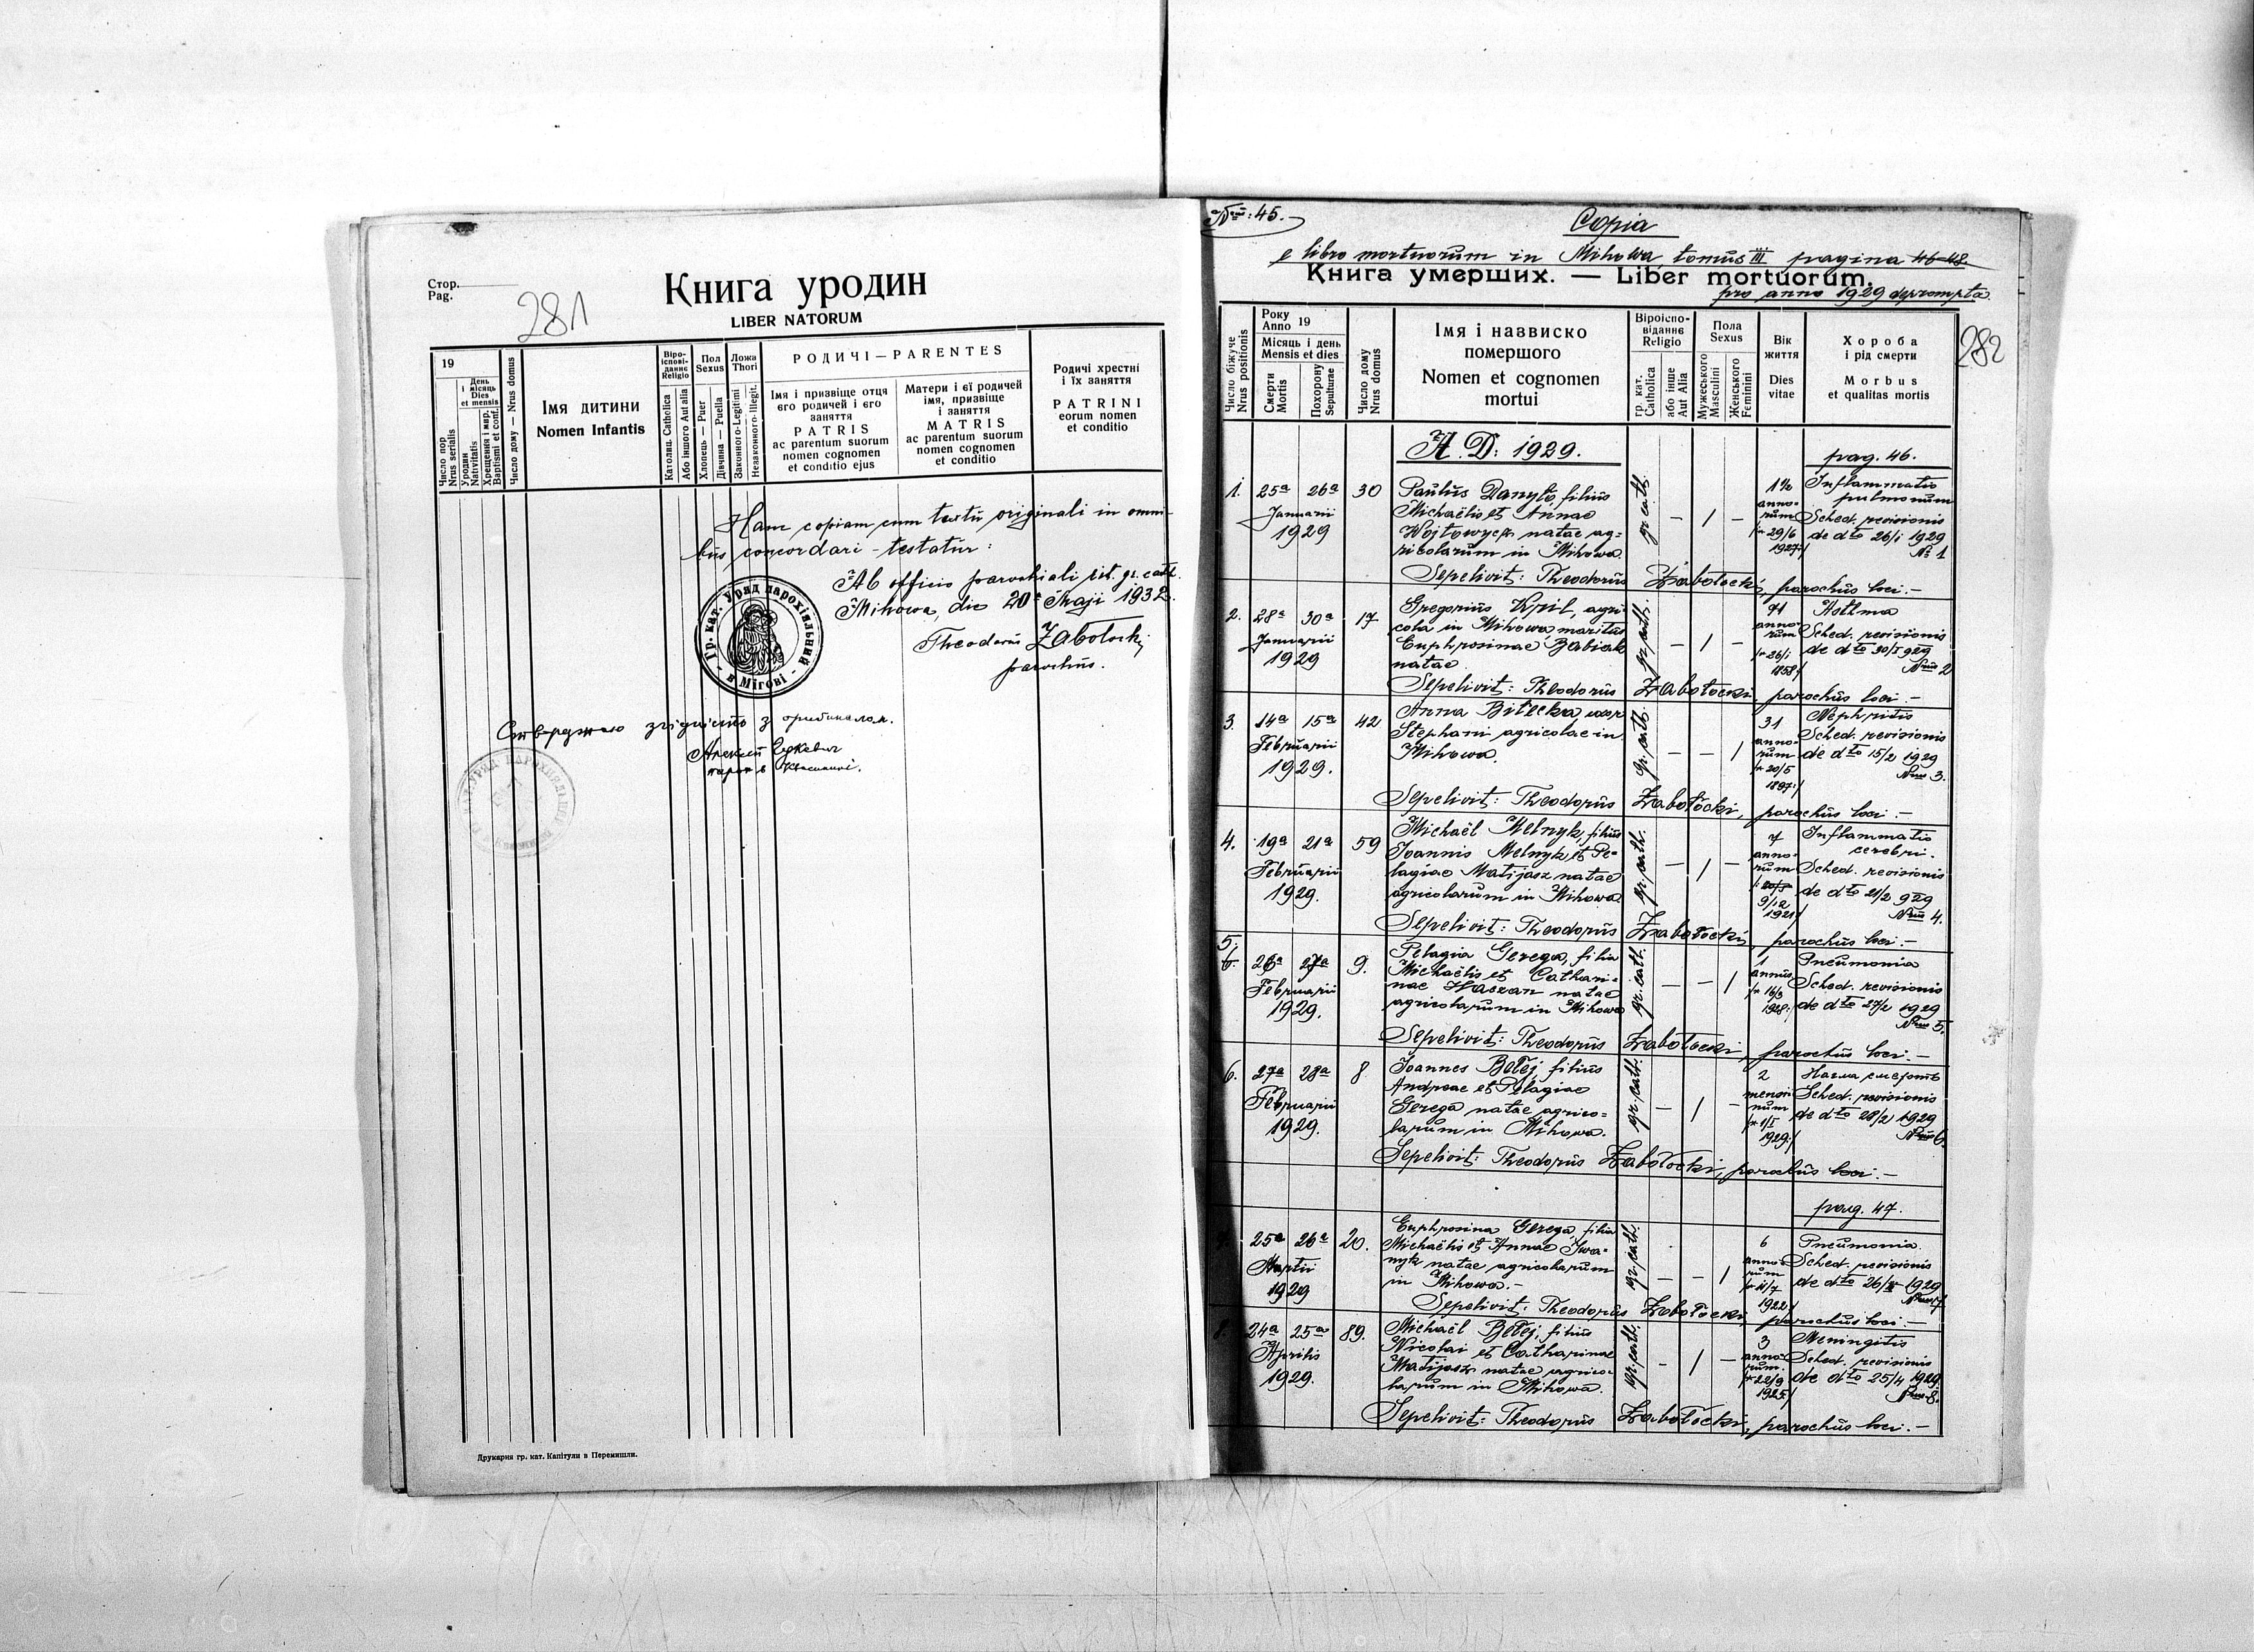 Стор.
Pag.
281
Книга уродин
LIBER NATORUM
19
День і місяць
Dies et mensis
Число пор
Nrus serialis
Уродин
Nativitatis
Хрещення і мир.
Baptismi et conf.
Число дому — Nrus domus
Імя дитини
Nomen Infantis
Віро-
іспові-
даннє
Religio
Католиц. Catholica
Або іншого Aut alia
Пол
Sexus
Хлопець — Puer
Дівчина — Puella
Ложа
Thori
Законного-Legitimi
Незаконного-Illegit.
РОДИЧІ — PARENTES
Імя і призвіще отця
єго родичей і єго
заняття
PATRIS
ac parentum suorum
nomen cognomen
et conditio ejus
Матери і єї родичей
імя, призвіще
і заняття
MATRIS
ac parentum suorum
nomen cognomen
et conditio
Родичі хрестні
і їх заняття
PATRINI
eorum nomen
et conditio
Hanc copiam cum textu originali in omni-
bus concordari - testatur:
Ab officio parochiali rit. gr. cath.
Mihowa, die 20a Maji 1932.
Theodorus Zabołocki
parochus.
Гр. кат. Уряд парохіяльний
в Мігові
Стверджаю згідність з оригіналом.
Друкарня гр. кат. Капітули в Перемишли.
Nrus: 45.
Copia
e libro mortuorum in Mihowa, tomus III pagina 46-48.
Книга умерших. — Liber mortuorum.
pro anno 1929 deprompta.
282
Число біжуче
Nrus positionis
Року
Anno 19
Місяць і день
Mensis et dies
Смерти
Mortis
Похорону
Sepulturae
Число дому
Nrus domus
Імя і назвиско
помершого
Nomen et cognomen
mortui
Віроіспо-
віданнє
Religio
гр. кат.
Catholica
або інше
Aut Alia
Пола
Sexus
Мужеського
Masculini
Женського
Feminini
Вік
життя
Dies
vitae
Хороба
і рід смерти
Morbus
et qualitas mortis
A. D. 1929.
pag. 46.
1. 25a 26a 30 Paulus Danyło, filius gr. cath. — / — 1½ Inflammatio
Januarii Michaëlis et Annae anno- pulmonum
1929 Wojtowycz natae ag- rum Sched. revisionis
ricolarum in Mihowa. /* 29/6 de dto 26/1 1929
1927/ No 1
Sepelivit: Theodorus Zabołocki, parochus loci.—
2. 28a 30a 17 Gregorius Kril, agri- gr. cath. — / — 71 Asthma
Januarii cola in Mihowa, maritus anno- Sched. revisionis
1929 Euphrosinae Babiak rum de dto 30/I 929
natae. /* 26/1 Nrus 2
1858/
Sepelivit: Theodorus Zabołocki, parochus loci.—
3. 14a 15a 42 Anna Bilecka, uxor gr. cath. — — / 31 Nephritis
Februarii Stephani agricolae in anno- Sched. revisionis
1929. Mihowa. rum de dto 15/2 1929
/* 20/5 Nrus 3.
1897/
Sepelivit: Theodorus Zabołocki, parochus loci.—
4. 19a 21a 59 Michaël Melnyk, filius gr. cath. — / — 7 Inflammatio
Februarii Joannis Melnyk et Pe- anno- cerebri.
1929. lagiae Matijasz natae rum Sched. revisionis
agricolarum in Mihowa. 9/12 de dto 21/2 929
1921/ Nrus 4.
Sepelivit: Theodorus Zabołocki, parochus loci.—
5. 26a 27a 9. Pelagia Gerega, filia gr. cath. — — / 1 Pneumonia
Februarii Michaëlis et Cathari- annus Sched. revisionis
1929. nae Haszan natae /* 16/3 de dto 27/2 1929
agricolarum in Mihowa 1928/ Nrus 5.
Sepelivit: Theodorus Zabołocki, parochus loci.—
6. 27a 28a 8 Joannes Betej, filius gr. cath. — / — 2 Нагла смерть
Februarii Andreae et Pelagiae mensi- Sched. revisionis
1929. Gerega natae, agrico- num de dto 28/2 1929
larum in Mihowa. /* 1/I 1929/ Nrus 6
Sepelivit: Theodorus Zabołocki, parochus loci.—
pag. 47.
7. 25a 26a 20. Euphrosina Gerega, filia gr. cath. — — / 6 Pneumonia.
Martii Michaëlis et Annae Iwa- anno- Sched. revisionis
1929 nyk natae agricolarum rum de dto 26/3 1929
in Mihowa.— /* 11/7 1922/ Nrus 7
Sepelivit: Theodorus Zabołocki, parochus loci.—
8. 24a 25a 89. Michaël Betej, filius gr. cath. — / — 3 Meningitis
Aprilis Nicolai et Catharinae anno- Sched. revisionis
1929. Matijasz natae agrico- rum. de dto 25/4 1929.
larum in Mihowa. /* 22/9 1925/ Nrus 8.
Sepelivit: Theodorus Zabołocki, parochus loci.—